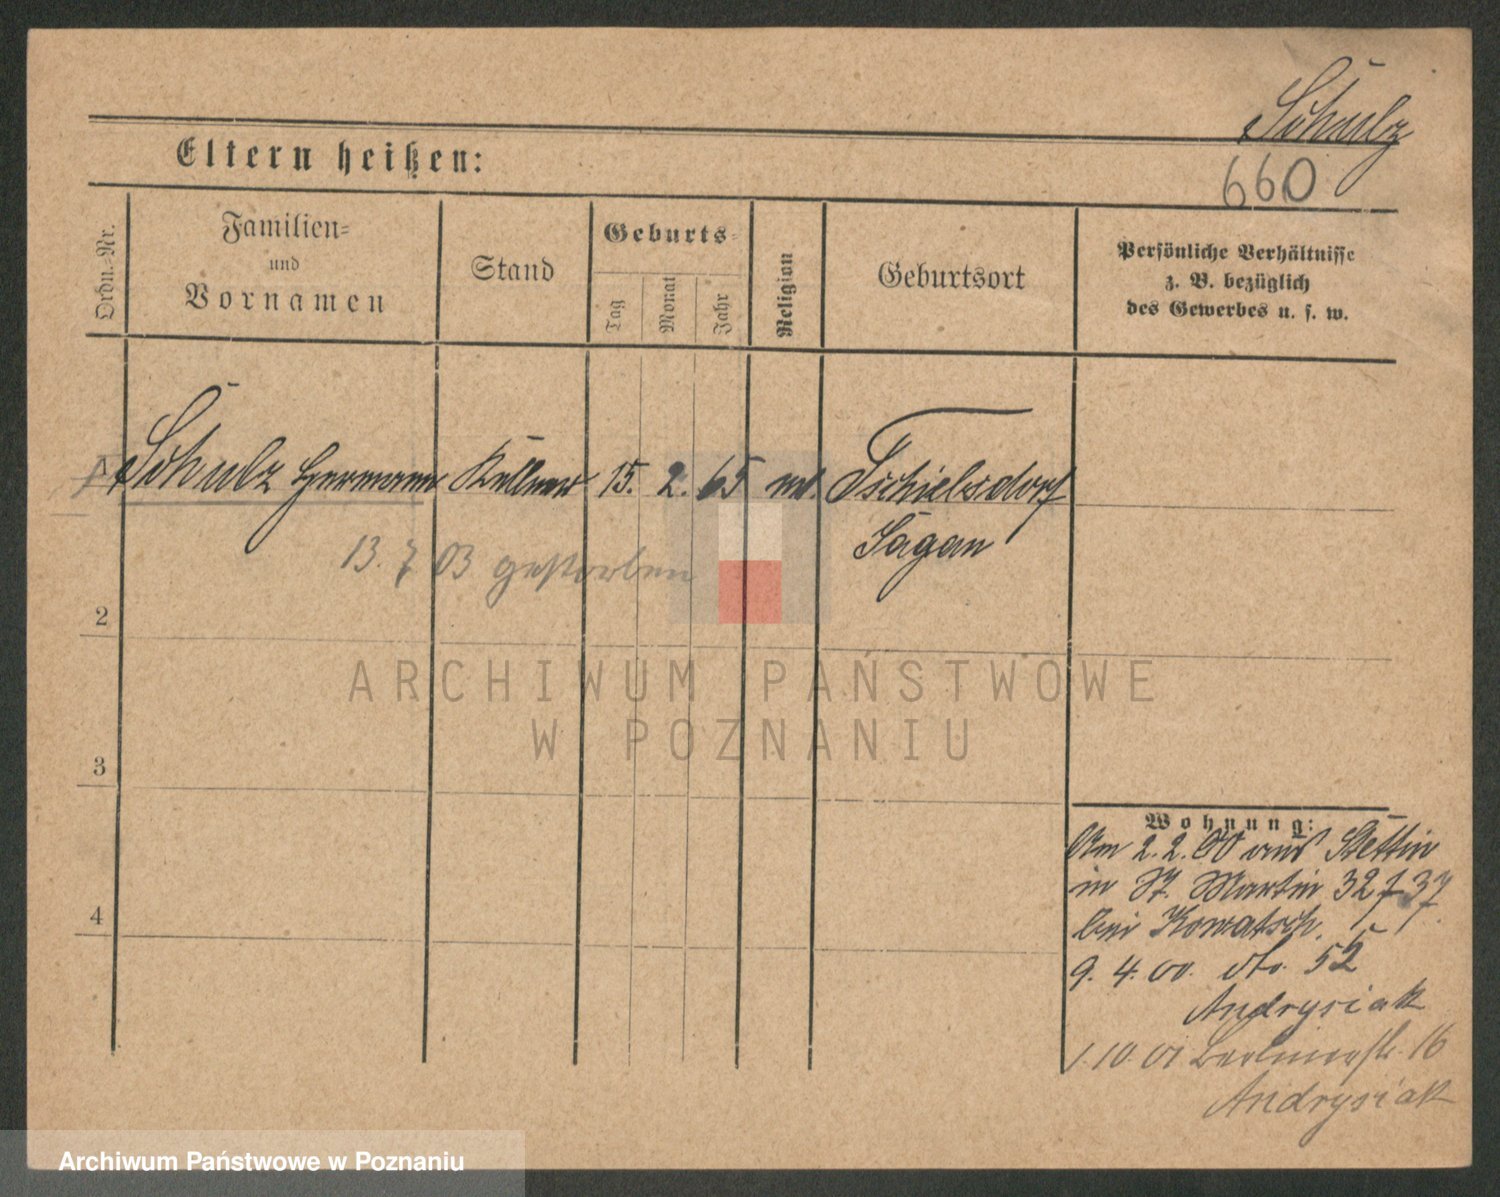 Schulz
Eltern heißen:
660
Ordn.-Nr.
Familien-
und
Vornamen
Stand
Geburts-
Tag
Monat
Jahr
Religion
Geburtsort
Persönliche Verhältnisse
z. B. bezüglich
des Gewerbes u. s. w.
Schulz Hermann Kellner 15. 2. 65 Tschiebsdorf
Sagan
13. 7 03 gestorben
2
3
4
ARCHIWUM PAŃSTWOWE
W POZNANIU
Wohnung:
Am 2.2.00 aus Stettin
in St. Martin 32 37
bei Kowatsch.
9. 4. 00. dto. 52
Andrysiak
1.10.01 Berlinerstr. 16
Andrysiak
Archiwum Państwowe w Poznaniu